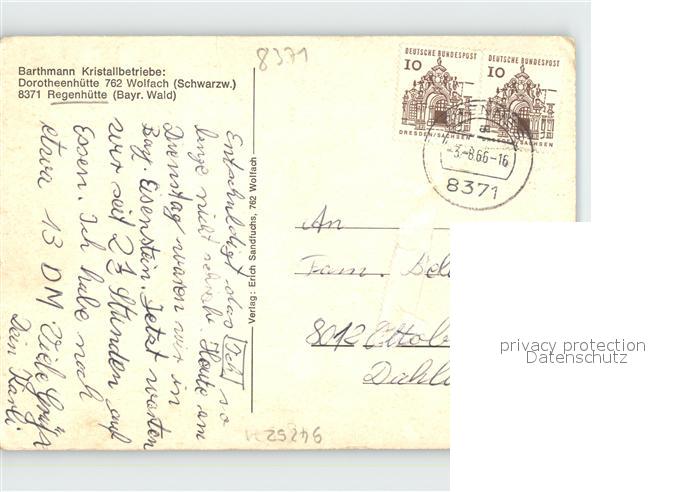 Barthmann Kristallbetriebe:
Dorotheenhütte 762 Wolfach (Schwarzw.)
8371 Regenhütte (Bayr. Wald)
8371
DEUTSCHE BUNDESPOST
10
DRESDEN/SACHSEN
DEUTSCHE BUNDESPOST
10
DRESDEN/SACHSEN
-3.-8.66-16
8371
Entschuldigt das Ich so
lange nicht schrieb. Heute am
Dienstag waren wir in
Bay. Eisenstein. Jetzt warten
wir seit 2½ Stunden auf
Essen. Ich habe noch
etwa 13 DM. Viele Grüße
Dein Karli
Verlag: Erich Sandfuchs, 762 Wolfach
An
Fam.
8012 Ottob
942521
privacy protection
Datenschutz